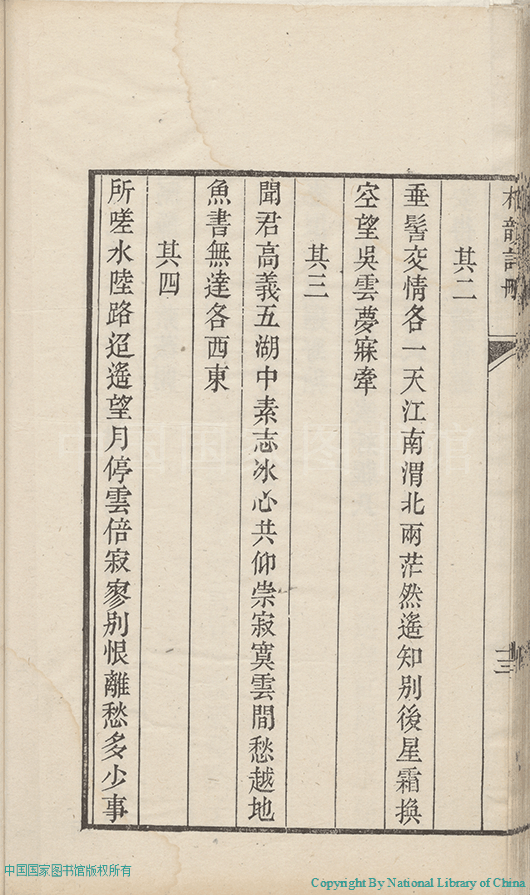 其二
垂髫交情各一天江南渭北兩茫然遙知別後星霜換
空望吳雲夢寐牽
其三
聞君高義五湖中素志冰心共仰崇寂寞雲間愁越地
魚書無達各西東
其四
所嗟水陸路迢遙望月停雲倍寂寥別恨離愁多少事
中国国家图书馆
中国国家图书馆版权所有
Copyright By National Library of China